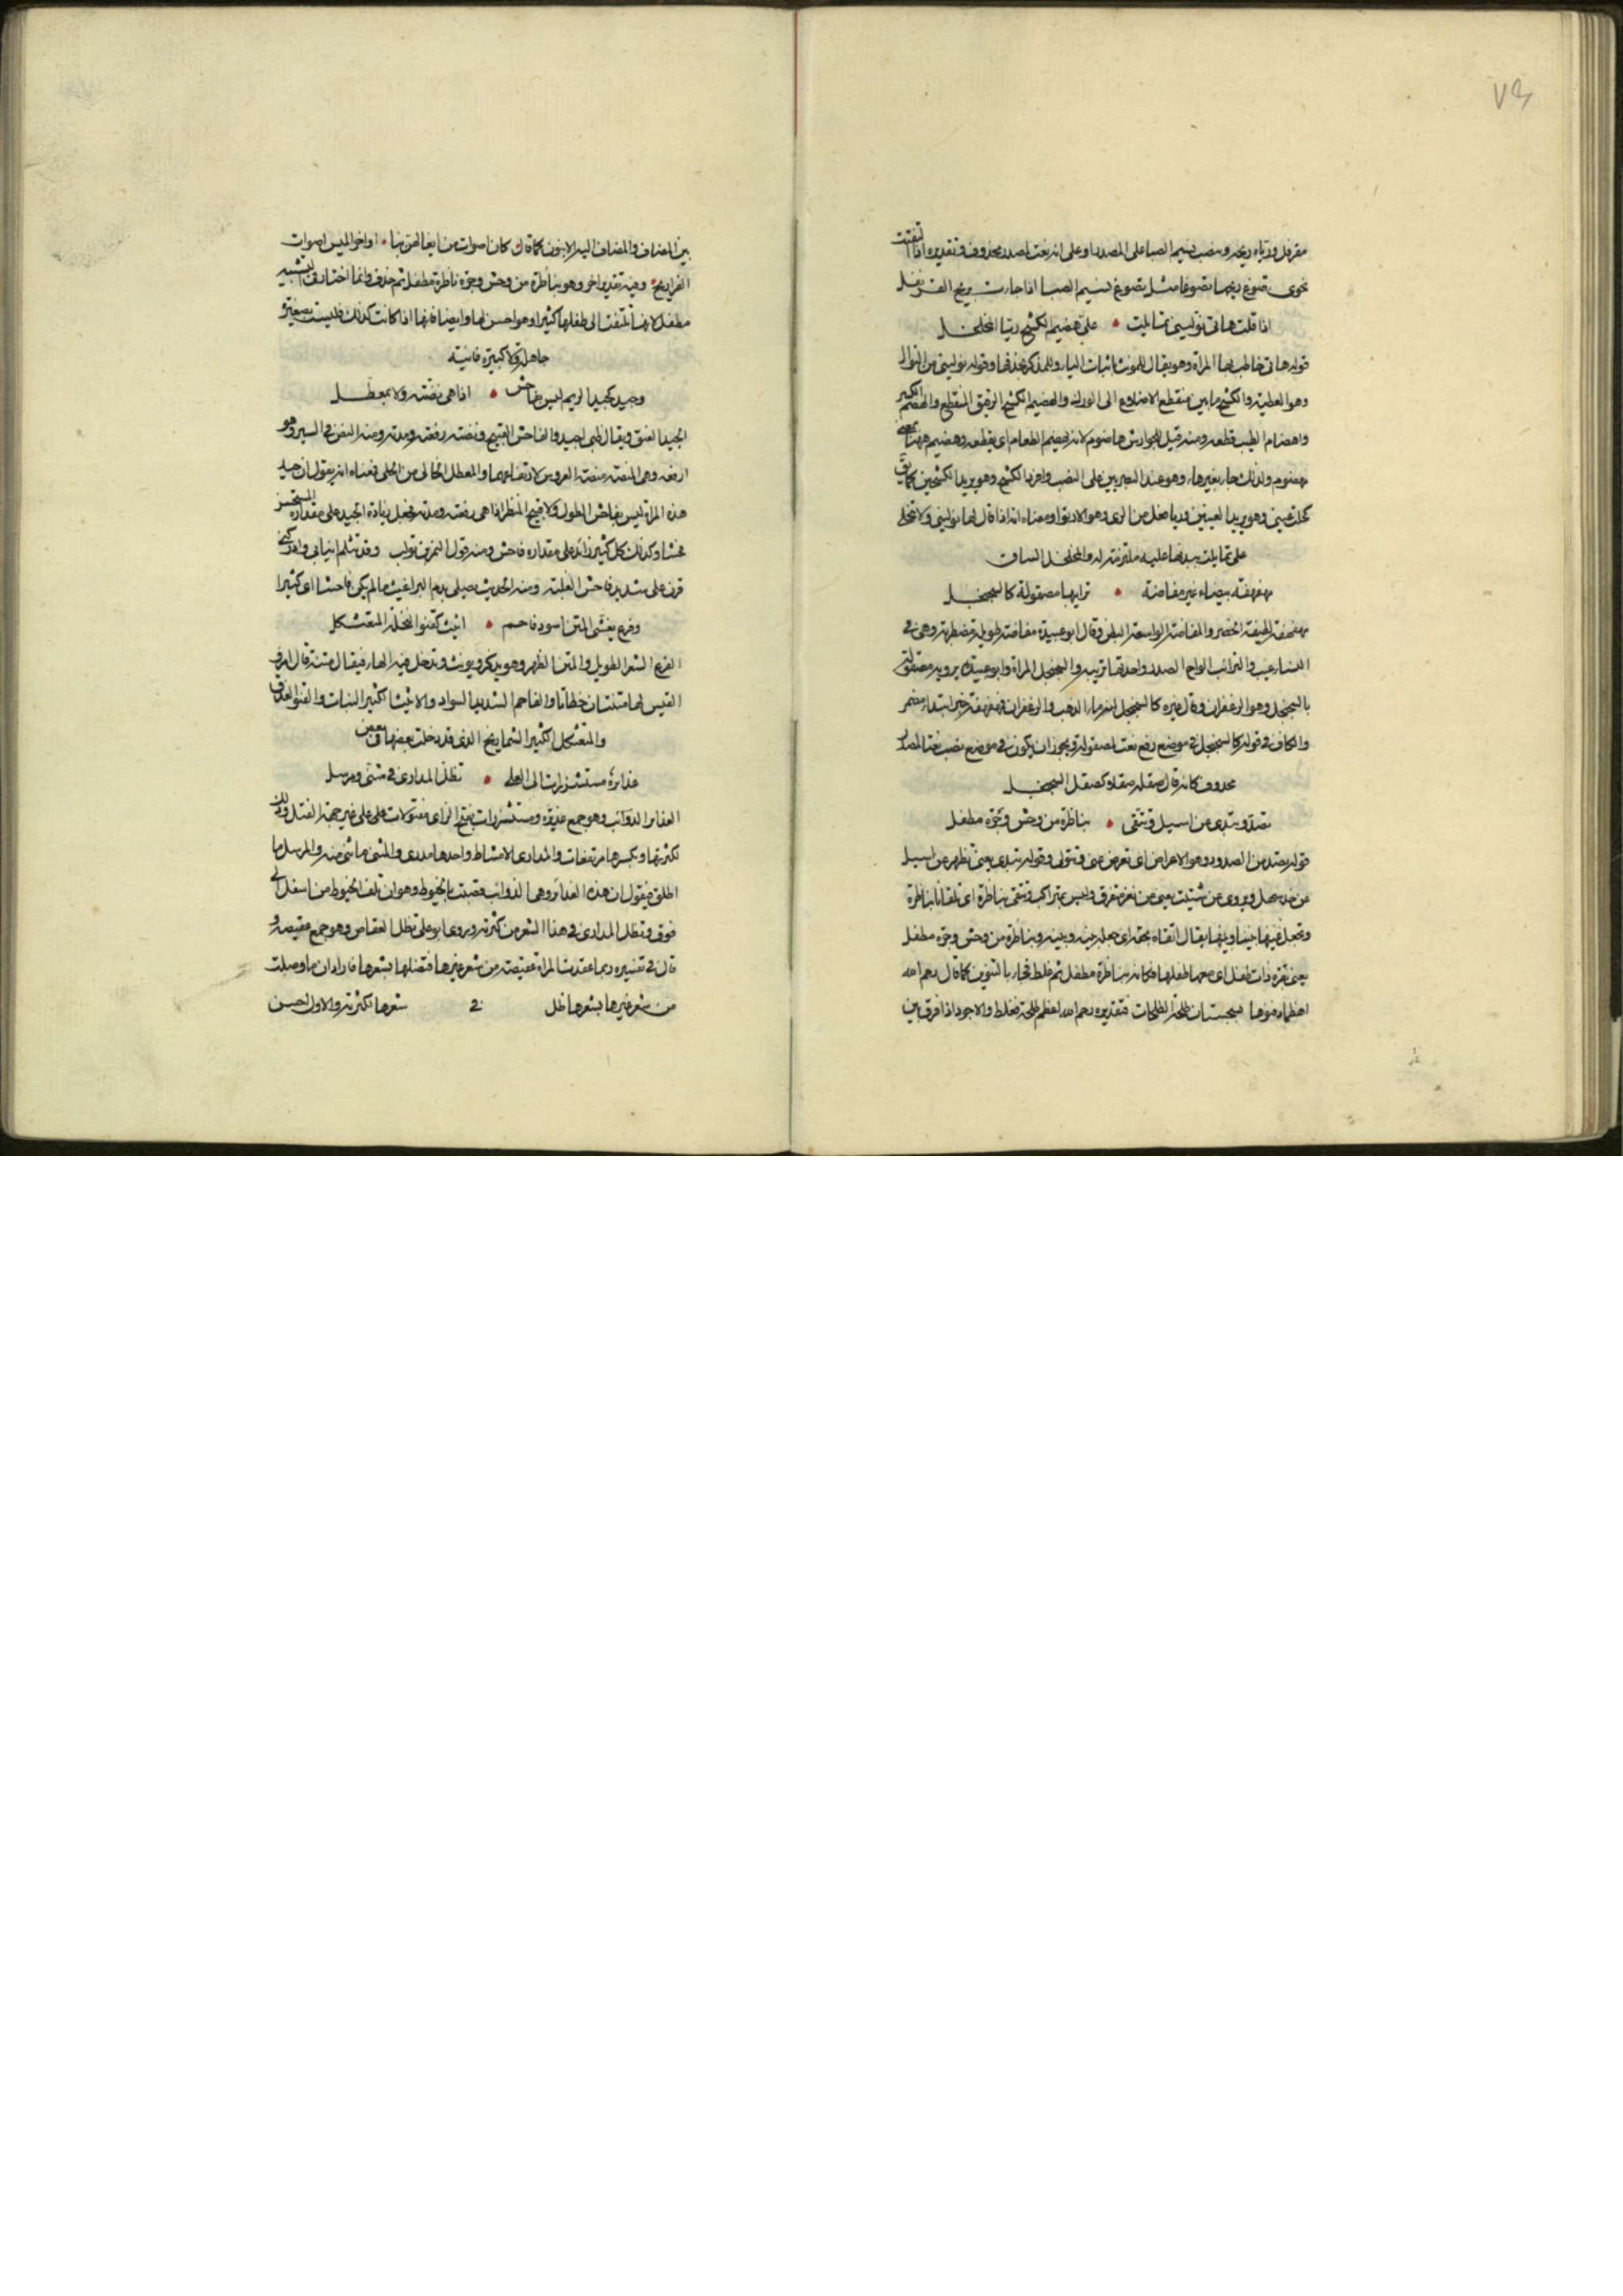 ٧٣
مقرفل ورياه ريحه ونصب نسيم الصبا على المصدر او على انه نعت لمصدر محذوف وتقديره اذا التفتت
نحوى تضوع ريحها تضوعا مثل تضوع نسيم الصبا اذا جاءت بريح القرنفل
اذا قلت هاتى نوليني تمايلت • على هضيم الكشح ريا المخلخل
قوله هاتى خاطب بها المراة وهو يقال للمونث باثبات الياء وللمذكر بحذفها وقوله نوليني من النوال
وهو العطية والكشح ما بين منقطع الاضلاع الى الورك والهضيم الكشح الرقيق المنقطع والهضم الكسر
واهضام الطيب قطعه ومنه قيل للجوارش هاضوم لانه يهضم الطعام اى يقطعه وهضيم ههنا بمعنى
مهضوم ولذلك جاء بغيرهاء وهو عند البصريين على النصب وافرد الكشح وهو يريد الكشحين كما يق
كحلت عيني وهو يريد العينين وريا فعلى من الرى وهو الارتوا ومعناه انه اذا قال لها نوليني ولا تبخلي
على تمايلت بيدها عليه ملتزمة له والمخلخل الساق
مهفهفة بيضاء غير مفاضة • ترايبها مصقولة كالسجنجل
مهفهفة لطيفة الخصر والمفاضة الواسعة البطن وقال ابو عبيدة مفاضة طويلة مضطربة وهى فى
النساء عيب والترائب الواح الصدر واحدتها تريبه والسجنجل المراة وابو عبيدة يرويه مصقولة
بالسجنجل وهو الزعفران وقال غيره كالسجنجل انه ماء الذهب والزعفران ومهفهفة خبر ابتداء مضمر
والكاف فى قوله كالسجنجل فى موضع رفع نعت لمصقولة ويجوز ان يكون فى موضع نصب نعتا لمصدر
محذوف كانه قال صقله صقلا كصقل السجنجل
تصد وتبدى عن اسيل وتتقى • بناظرة من وحش وجرة مطفل
قوله تصد من الصدود وهو الاعراض اى تعرض عنى وتتولى وقوله تبدى يعنى تظهر عن اسيل
عن خد سهل ويروى عن شتيت يعنى عن ثغر متفرق وليس بمتراكب وتتقى بناظرة اى تلقانا بناظرة
وتجعل عينها بيننا وبينها يقال اتقاه بحقه اى جعله بينه وبينه وبناظرة من وحش وجرة مطفل
يعنى بقرة ذات طفل اى معها طفلها فكانه بناظرة مطفل ثم غلط فجاء بالتنوين كما قال رحم الله
اعظما دفنوها بسجستان طلحة الطلحات فتقديره رحم الله اعظم طلحة فغلط والاجود اذا فرق بين
بين المضاف والمضاف اليه الا ينون كما قال • كان اصوات من ايغالهن بنا • اواخر الميس اصوات
الفراريج • وفيه تقدير اخر وهو بناظرة من وحش وجرة ناظرة مطفل ثم حذف وانما اختار فى التشبيه
مطفل لانها تلتفت الى طفلها كثيرا وهو احسن لها وايضا فانها اذا كانت كذلك فليست بصغيرة
جاهلة ولا كبيرة فانية
وجيد كجيد الريم ليس بفاحش • اذا هى نصته ولا بمعطل
الجيد العنق ويقال ظبى اجيد والفاحش القبيح ونصته رفعته ومدته ومنه النص فى السير وهو
ارفعه وهى المنصة منصة العروس لارتفاعهما والمعطل الخالى من الحلى فمعناه انه يقول ان جيد
هذه المراة ليس بفاحش الطول ولا قبيح المنظر اذا هى رفعته ومدته فجعل زيادة الجيد على مقداره المستحسن
فحشا وكذلك كل كثير زائد على مقداره فاحش ومنه قول النمر بن تولب وقد تثلم انيابى وادركنى
قرن على شديد فاحش الغلبة ومنه الحديث يصلى بدم البراغيث ما لم يكن فاحشا اى كثيرا
وفرع يغشى المتن اسود فاحم • اثيث كقنو النخلة المتعثكل
الفرع الشعر الطويل والمتن الظهر وهو يذكر ويونث وتدخل فيه الهاء فيقال متنة قال امرؤ
القيس لها متنتان خظاتا والفاحم الشديد السواد والاثيث الكثير النبات والقنو العذق
والمتعثكل الكثير الشماريخ الذى قد دخلت بعضها فى بعض
غدايره مستشزرات الى العلى • تظل المدارى فى مثنى ومرسل
الغداير الذوائب وهو جمع غديرة ومستشزرات بفتح الزاى مفتولات على على غير جهة الفتل وذلك
لكثرتها وبكسرها مرتفعات والمدارى الامشاط واحدها مدرى والمثنى ما ثنى منه والمرسل ما
اطلق فيقول ان هذه الغدائر وهى الذوائب قصبت بالخيوط وهو ان تلف الخيوط من اسفل الى
فوق وتظل المدارى فى هذا الشعر من كثرته ويروى ابو على تظل العقاص وهو جمع عقيصة و
قال فى تفسيره ربما عقدت المراة عقيصة من شعر غيرها فتصلها بشعرها فاراد ان ما وصلت
من شعر غيرها بشعرها ظل فى شعرها لكثرته والاول احسن